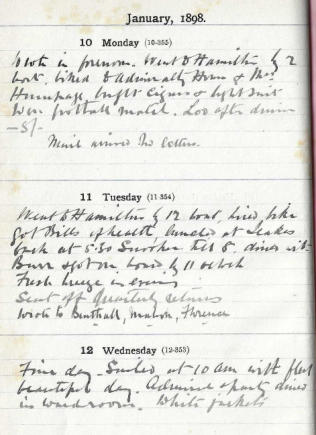 January, 1898.
10 Monday (10-355)
Wrote in forenoon. Went to Hamilton by 2
boat, biked to Admiralty House & Mrs
bright cigars & light suit
Won football match. Loo after dinner
-5/-
Mail arrived No letters.
11 Tuesday (11-354)
Went to Hamilton by 12 boat, hired bike
Got Bills of health at
back at 5.30 Snooker till 8. dined with
Burr & got on board by 11 o'clock
Fresh breeze in evening
Sent off Quarterly returns
wrote to Benthall, Florence
12 Wednesday (12-353)
Fine day. Sailed at 10 am with fleet
beautiful day. Admiral & party dined
in wardroom. White jackets